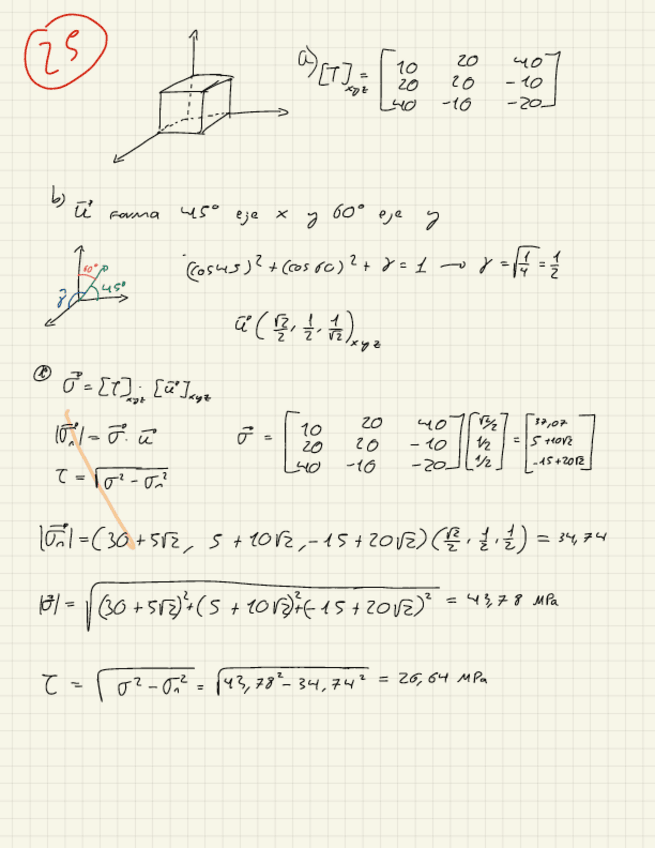 25
a) [T]xyz = [10 20 40
20 20 -10
40 -10 -20]
b) ū forma 45° eje x y 60° eje y
60° 45° γ
(cos45)² + (cos60)² + γ = 1 → γ = √(1/4) = 1/2
ū (√2/2, 1/2, 1/√2)xyz
σ⃗ = [T]xyz · [ū]xyz
|σ⃗n| = σ⃗ · ū
σ⃗ = [10 20 40; 20 20 -10; 40 -10 -20] [√2/2; 1/2; 1/2] = [37,07; 5+10√2; -15+20√2]
τ = √(σ² - σn²)
|σ⃗n| = (30+5√2, 5+10√2, -15+20√2) (√2/2, 1/2, 1/2) = 34,74
|σ⃗| = √((30+5√2)² + (5+10√2)² + (-15+20√2)²) = 43,78 MPa
τ = √(σ² - σn²) = √(43,78² - 34,74²) = 26,64 MPa